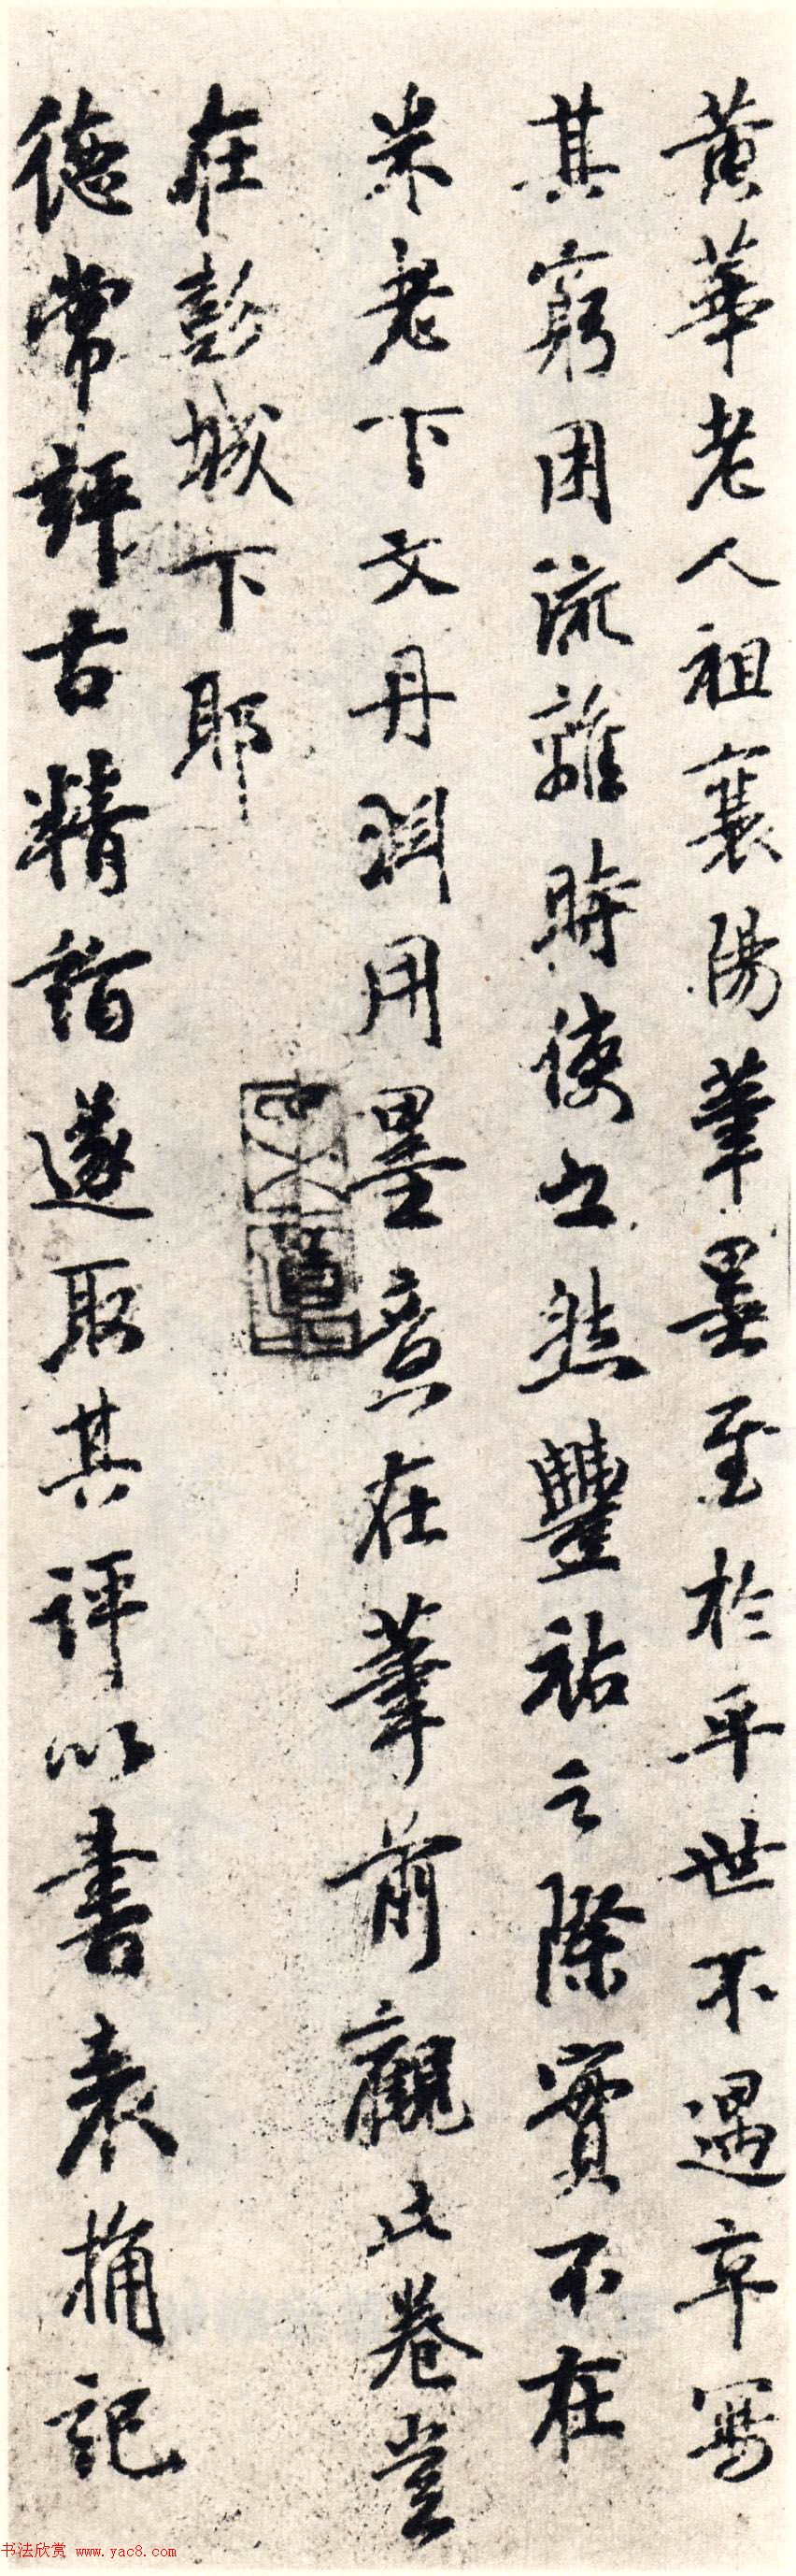 黃華老人祖襄陽筆墨至於平世不遇卒寫
其窮困流離時使之然豐祐之際實不在
米老下文丹淵用墨意在筆前觀此卷豈
在彭城下耶
德常評古精詣遂取其評以書表
記
书法欣赏 www.yac8.com